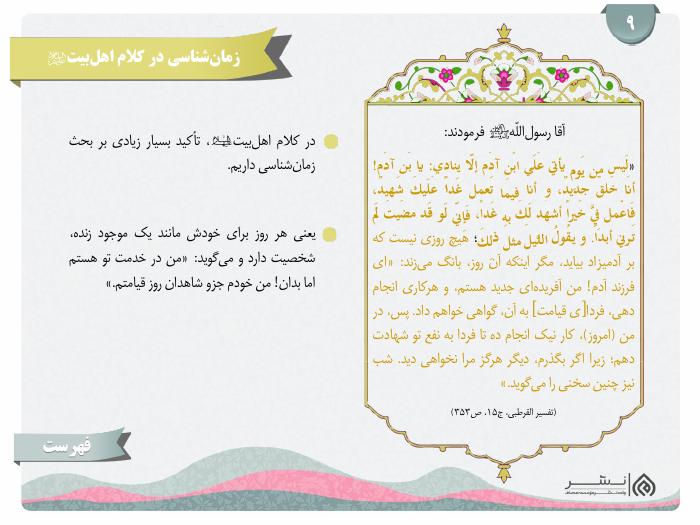 ۹
زمان‌شناسی در کلام اهل‌بیت
آقا رسول‌الله فرمودند:
«لَیس مِن یَوم یَأتي عَلَی ابنِ آدَم إلّا یُنادي: یا بن آدَم!
أنا خَلق جَدید، و أنا فیما تَعمل غَداً عَلَیك شَهید،
فَاعمَل فيَّ خَیراً أشهد لَك بِهِ غَداً، فَإنّي لَو قَد مَضَیت لَم
تَرَني أبداً. و یَقولُ اللَّیل مثل ذَلك؛ هیچ روزی نیست که
بر آدمیزاد بیاید، مگر اینکه آن روز، بانگ می‌زند: «ای
فرزند آدم! من آفریده‌ای جدید هستم، و هرکاری انجام
دهی، فردا[ی قیامت] به آن، گواهی خواهم داد. پس، در
من (امروز)، کار نیک انجام ده تا فردا به نفع تو شهادت
دهم؛ زیرا اگر بگذرم، دیگر هرگز مرا نخواهی دید. شب
نیز چنین سخنی را می‌گوید.»
(تفسیر القرطبی، ج۱۵، ص۳۵۳)
در کلام اهل‌بیت، تأکید بسیار زیادی بر بحث
زمان‌شناسی داریم.
یعنی هر روز برای خودش مانند یک موجود زنده،
شخصیت دارد و می‌گوید: «من در خدمت تو هستم
اما بدان! من خودم جزو شاهدان روز قیامتم.»
فهرست
نشر